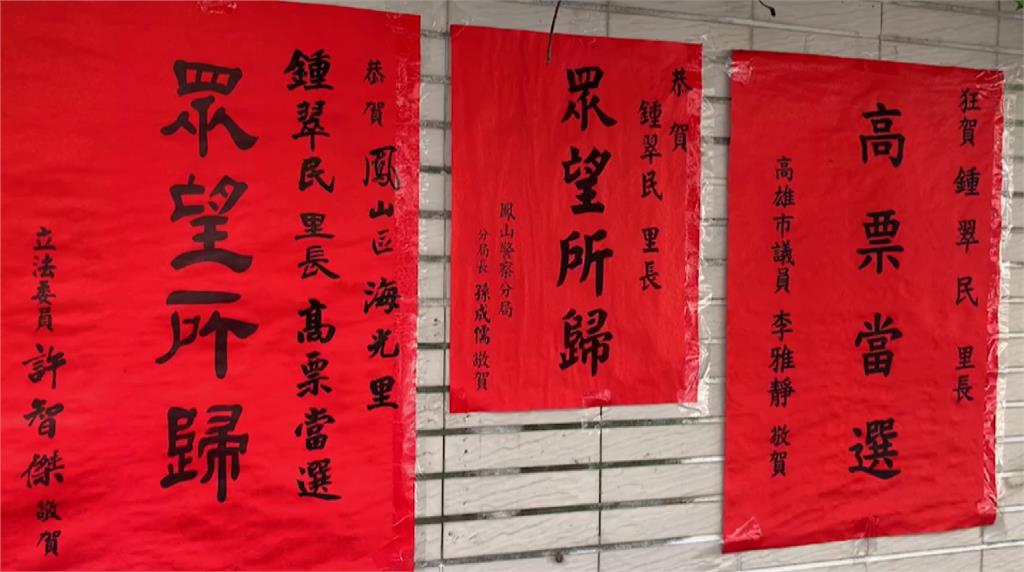 恭賀 鳳山區 海光里
鍾翠民 里長 髙票當選
眾望所歸
立法委員 許智傑 敬賀
恭賀
鍾翠民 里長
眾望所歸
鳳山警察分局
分局長 孫成儒 敬賀
狂賀 鍾翠民 里長
高票當選
高雄市議員 李雅靜 敬賀